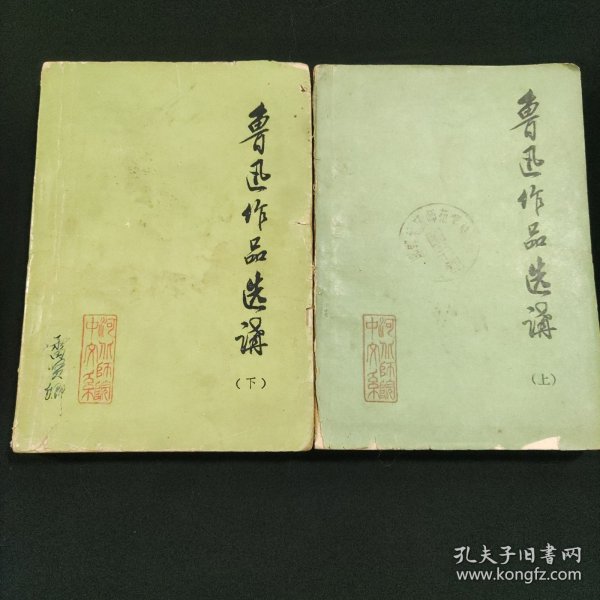 鲁迅作品选讲
（下）
河北师院
中文系
鲁迅作品选讲
（上）
河北师院
中文系
孔夫子旧书网
www.kongfz.com